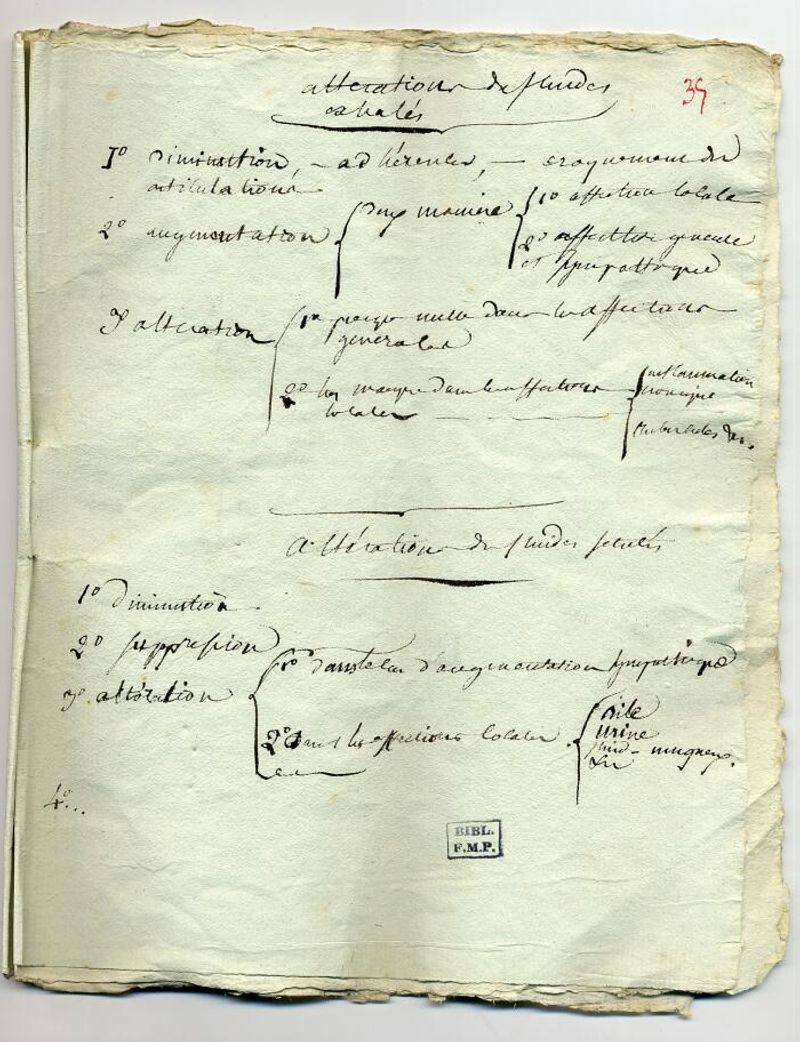 altérations des fluides
exhalés
35
1° diminution, - adhérences, - craquement des
articulations
2° augmentation
deux manières
1° affection locale
2° affection générale
et sympathique
3° altération
1° presque nulle dans les affections
générales
2° les dans les affections
locales
inflammation
chronique
Altération des fluides sécrétés
1° diminution
2° suppression
3° altération
1° dans le cas d'augmentation sympathique
2° dans les affections locales
bile
urine
fluid- muqueux.
4°...
BIBL.
F.M.P.